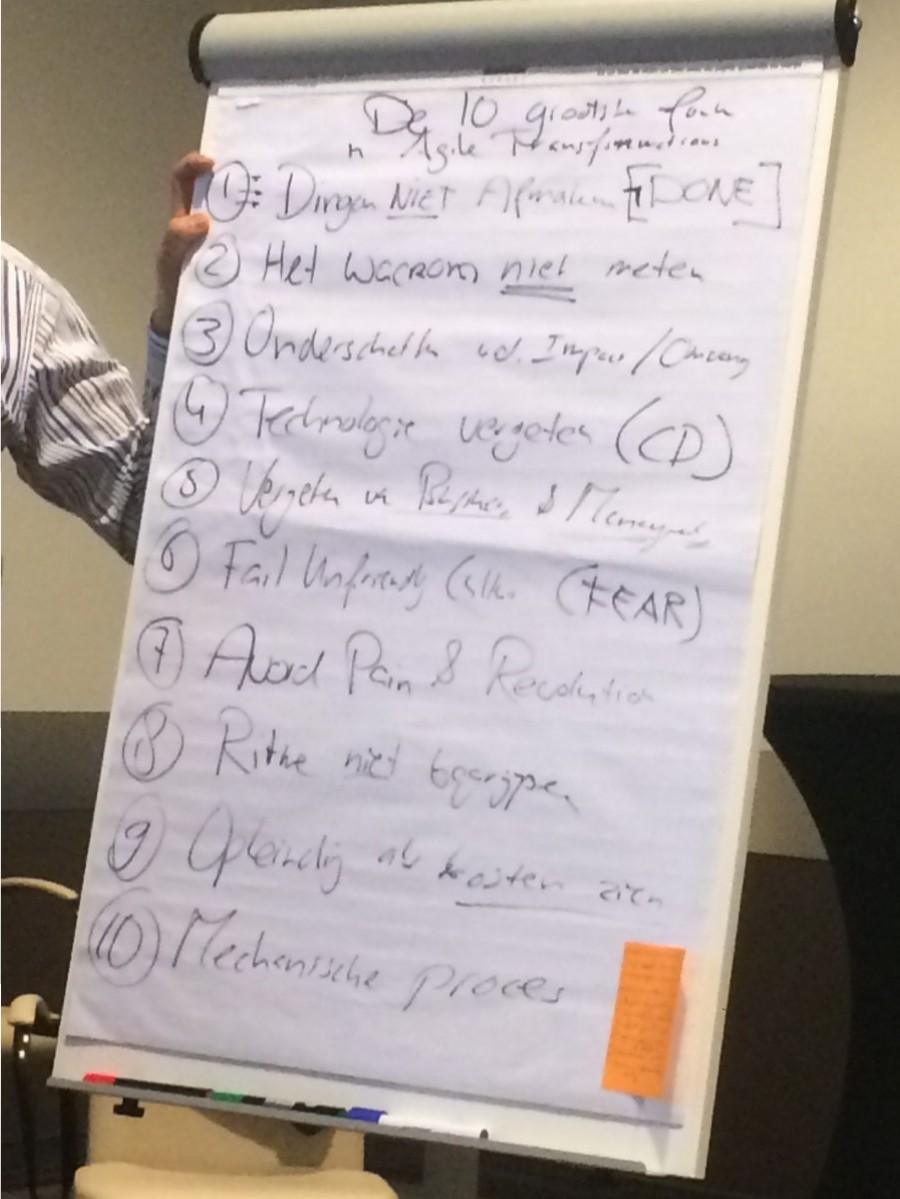 De 10 grootste fouten
in Agile Transformations
① Dingen NIET Afmaken [DONE]
② Het Waarom niet meten
③ Onderschatten v.d. Impact / Omvang
④ Technologie vergeten (CD)
⑤ Vergeten &
⑥ Fail Unfriendly (FEAR)
⑦ Avoid Pain & Revolution
⑧ niet begrijpen
⑨ Opleiding als kosten zien
⑩ Mechanische proces